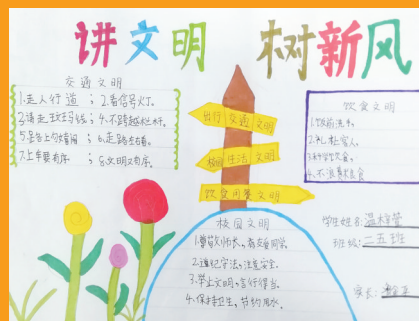 讲文明 树新风
交通文明
1.走人行道； 2.看信号灯。
3.请走斑马线； 4.不跨越栏杆。
6.走路靠右。
7.上车要有序； 8.文明又有序。
出行交通文明
校园生活文明
饮食用餐文明
饮食文明
1.饭前洗手。
2.礼让客人。
3.科学饮食。
4.不浪费粮食
校园文明
1.尊敬师长，善友爱同学。
2.遵纪守法，注意安全。
3.举止文明，言行得当。
4.保持卫生，节约用水。
学生姓名：温梓萱
班级：二五班
家长：